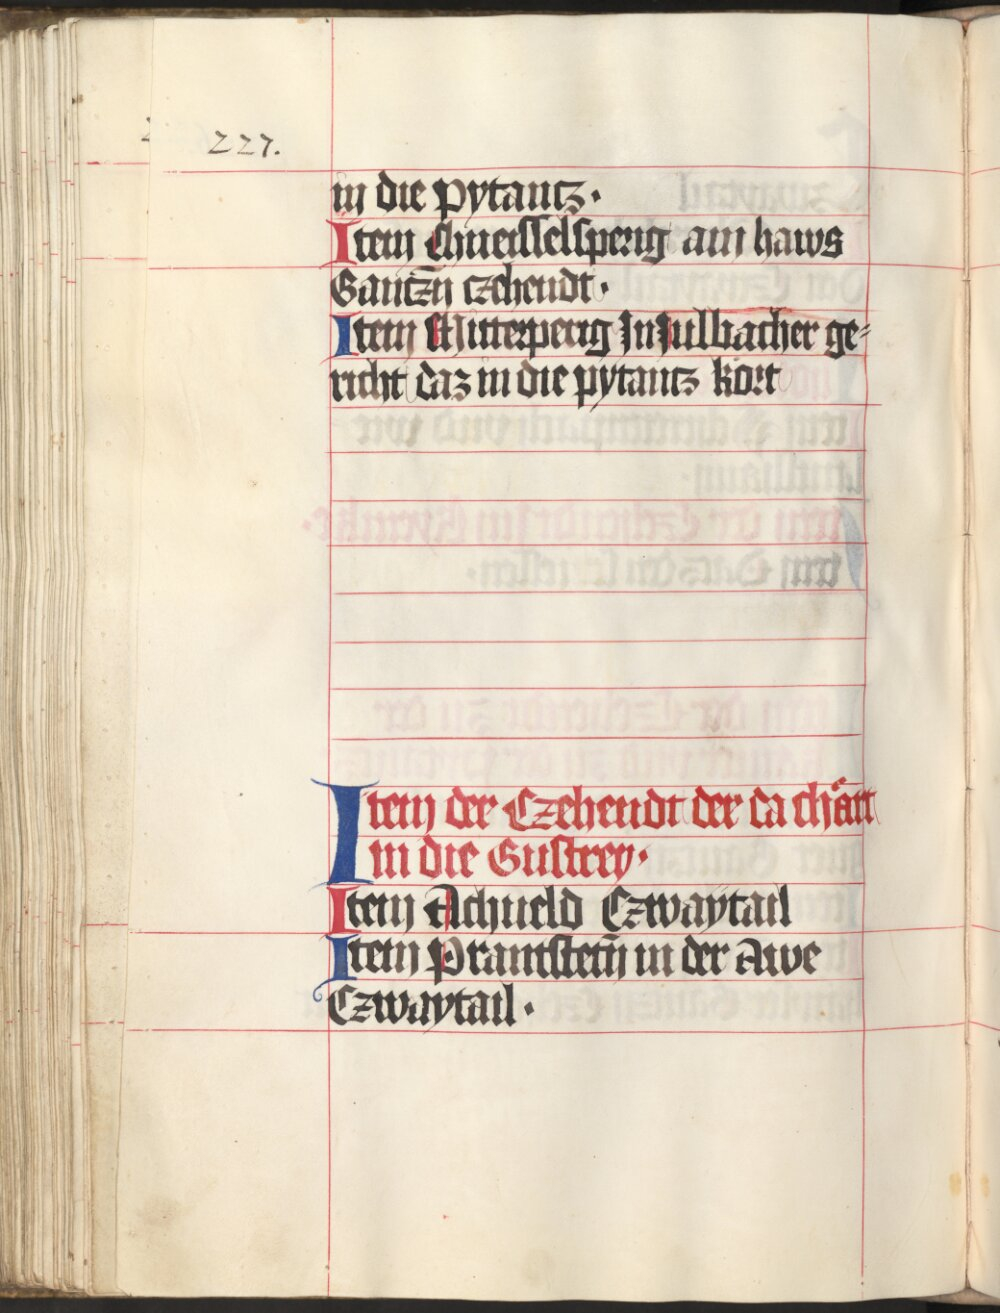 227.
in die pytantz.
Item Chneisselsperg ain haws
Gantzn̄ czehendt.
Item Mitterperig In Julbacher ge=
richt daz in die pytantz kort
Item der Czehendt der da chört
in die Gustrey.
Item Achueld Czwaytail
Item Pramsten̄ in der Awe
Czwaytail.